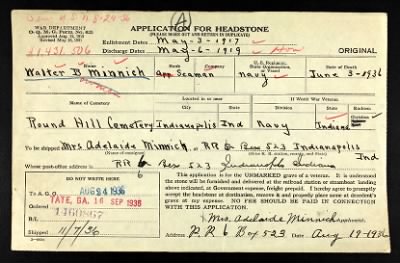 A
WAR DEPARTMENT
O. Q. M. G. Form No. 623
APPLICATION FOR HEADSTONE
(PLEASE MAKE OUT AND RETURN IN DUPLICATE)
Enlistment Dates May-3-1917
Discharge Dates May-6-1919 Hon
ORIGINAL
Walter B Minnich
App Seaman
Navy
June 3-1936
Name of Cemetery
Located in or near
If World War Veteran
Round Hill Cemetery Indianapolis Ind
Navy
Indiana
To be shipped Mrs Adelaide Minnich, RR 6 Box 523 Indianapolis Ind
Whose post-office address is RR 6 Box 523 Indianapolis Indiana
DO NOT WRITE HERE
This application is for the UNMARKED grave of a veteran. It is understood
the stone will be furnished and delivered at the railroad station or steamboat landing
indicated above, at Government expense, freight prepaid. I hereby agree to promptly
accept the headstone at destination, remove it and properly place same at decedent's
grave at my expense. NO FEE SHOULD BE PAID IN CONNECTION WITH
THIS APPLICATION.
To A. G. O. AUG 24 1936
TATE, GA. 16 SEP 1936
Ordered
B/L 1460867
Shipped 11/7/36
Mrs. Adelaide Minnich Applicant
Address R R 6 Box 523 Date Aug 19-1936